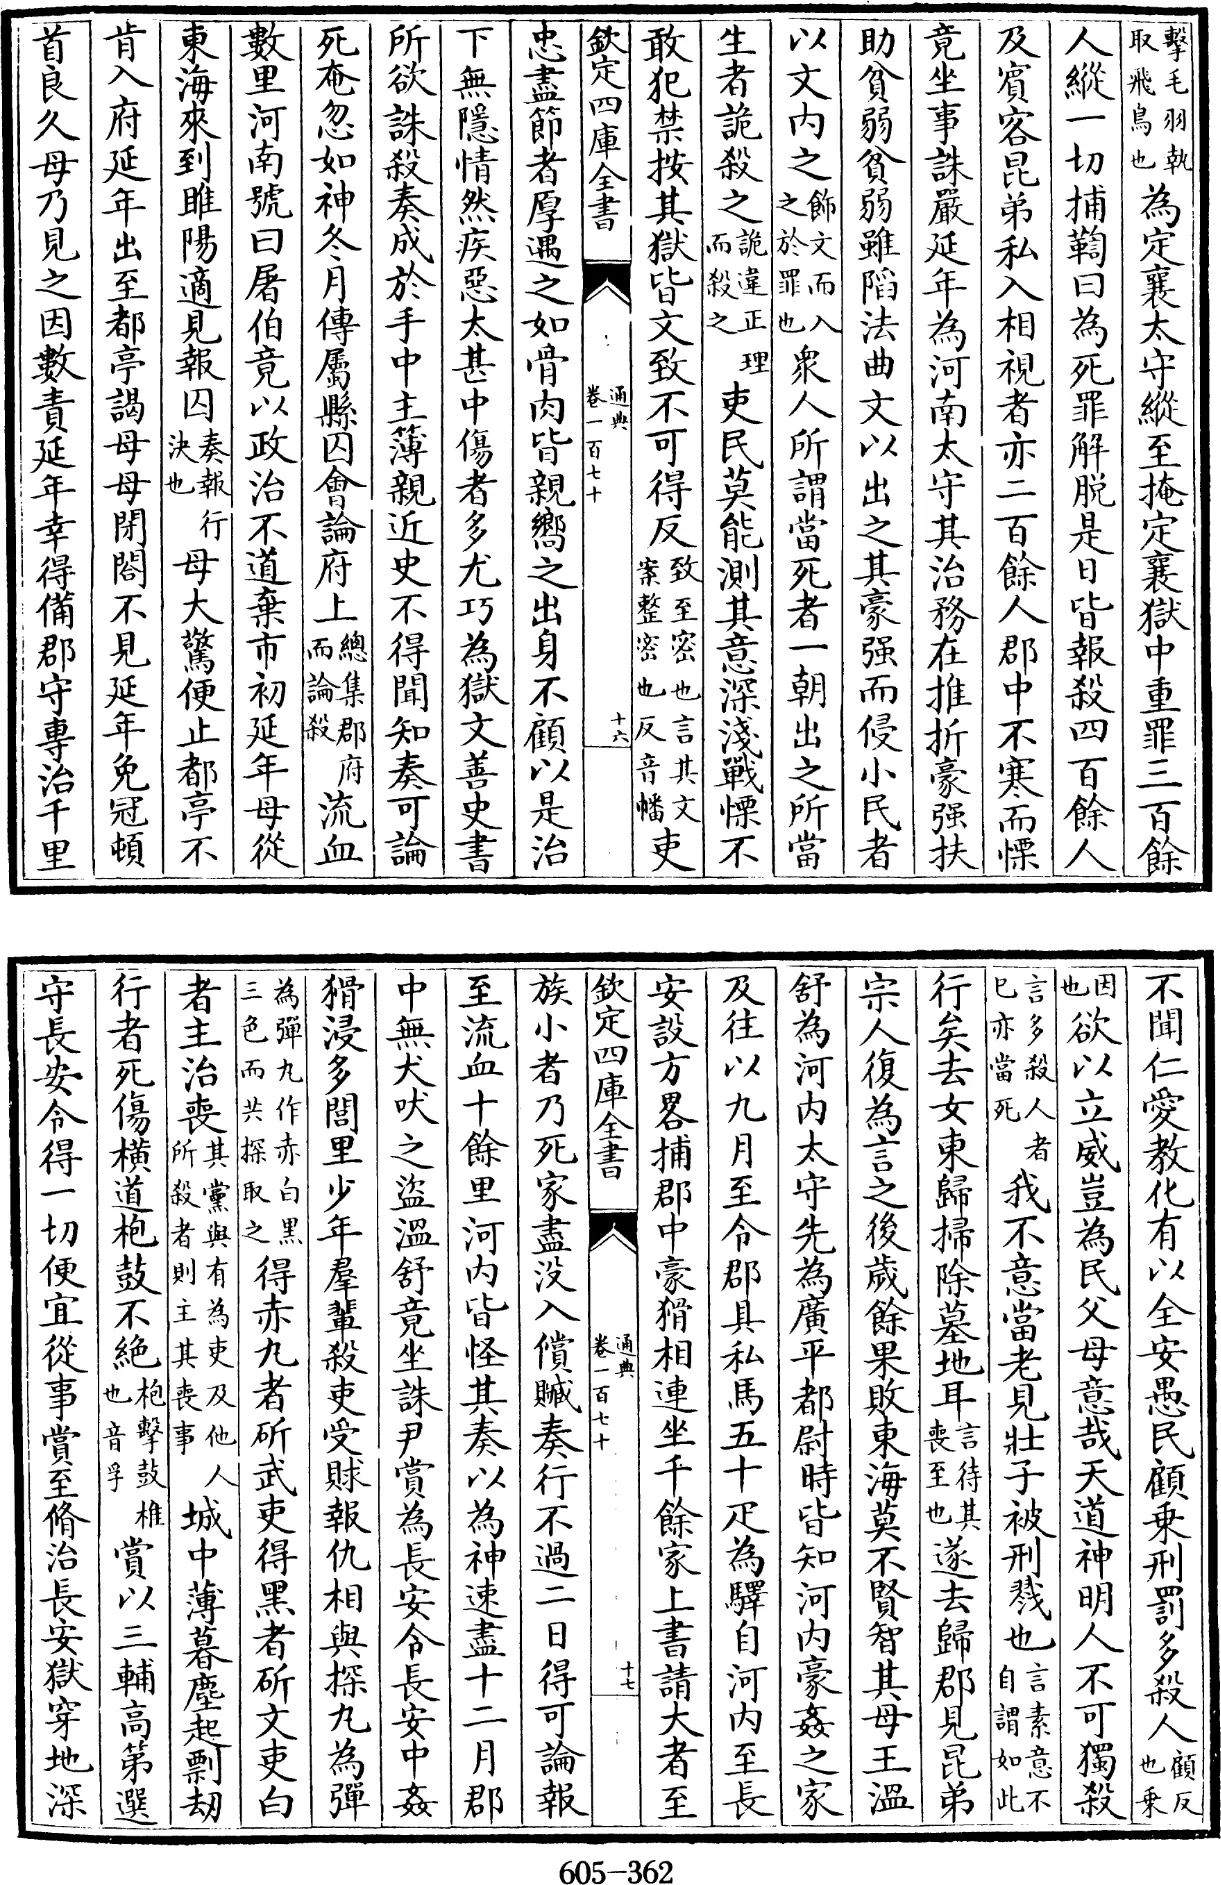 擊毛羽執取飛鳥也為定襄太守縱至掩定襄獄中重罪三百餘
人縱一切捕鞫曰為死罪解脱是日皆報殺四百餘人
及賓客昆弟私入相視者亦二百餘人郡中不寒而慄
竟坐事誅嚴延年為河南太守其治務在摧折豪强扶
助貧弱貧弱雖䧟法曲文以出之其豪强而侵小民者
以文内之飾文而入之於罪也衆人所謂當死者一朝出之所當
生者詭殺之詭違正理而殺之吏民莫能測其意深淺戰慄不
敢犯禁按其獄皆文致不可得反致至密也言其文案整密也反音幡吏
欽定四庫全書
通典
卷一百七十
十六
忠盡節者厚遇之如骨肉皆親嚮之出身不顧以是治
下無隱情然疾惡太甚中傷者多尤巧為獄文善史書
所欲誅殺奏成於手中主簿親近史不得聞知奏可論
死奄忽如神冬月傳屬縣囚會論府上總集郡府而論殺流血
數里河南號曰屠伯竟以政治不道棄市初延年母從
東海來到雎陽適見報囚奏報行決也母大驚便止都亭不
肯入府延年出至都亭謁母母閉閤不見延年免冠頓
首良久母乃見之因數責延年幸得備郡守專治千里
不聞仁愛教化有以全安愚民顧乗刑罰多殺人顧反也乗
因也欲以立威豈為民父母意哉天道神明人不可獨殺
言多殺人者已亦當死我不意當老見壯子被刑戮也言素意不自謂如此
行矣去女東歸掃除墓地耳言待其喪至也遂去歸郡見昆弟
宗人復為言之後歲餘果敗東海莫不賢智其母王溫
舒為河内太守先為廣平都尉時皆知河内豪姦之家
及往以九月至令郡具私馬五十疋為驛自河内至長
安設方畧捕郡中豪猾相連坐千餘家上書請大者至
欽定四庫全書
通典
卷一百七十
十七
族小者乃死家盡没入償贓奏行不過二日得可論報
至流血十餘里河内皆怪其奏以為神速盡十二月郡
中無犬吠之盜溫舒竟坐誅尹賞為長安令長安中姦
猾浸多閭里少年羣輩殺吏受賕報仇相與探丸為彈
為彈丸作赤白黑三色而共探取之得赤丸者斫武吏得黑者斫文吏白
者主治喪其黨與有為吏及他人所殺者則主其喪事城中薄暮塵起剽劫
行者死傷横道枹鼓不絶枹擊鼓椎也音孚賞以三輔高第選
守長安令得一切便宜從事賞至脩治長安獄穿地深
605-362